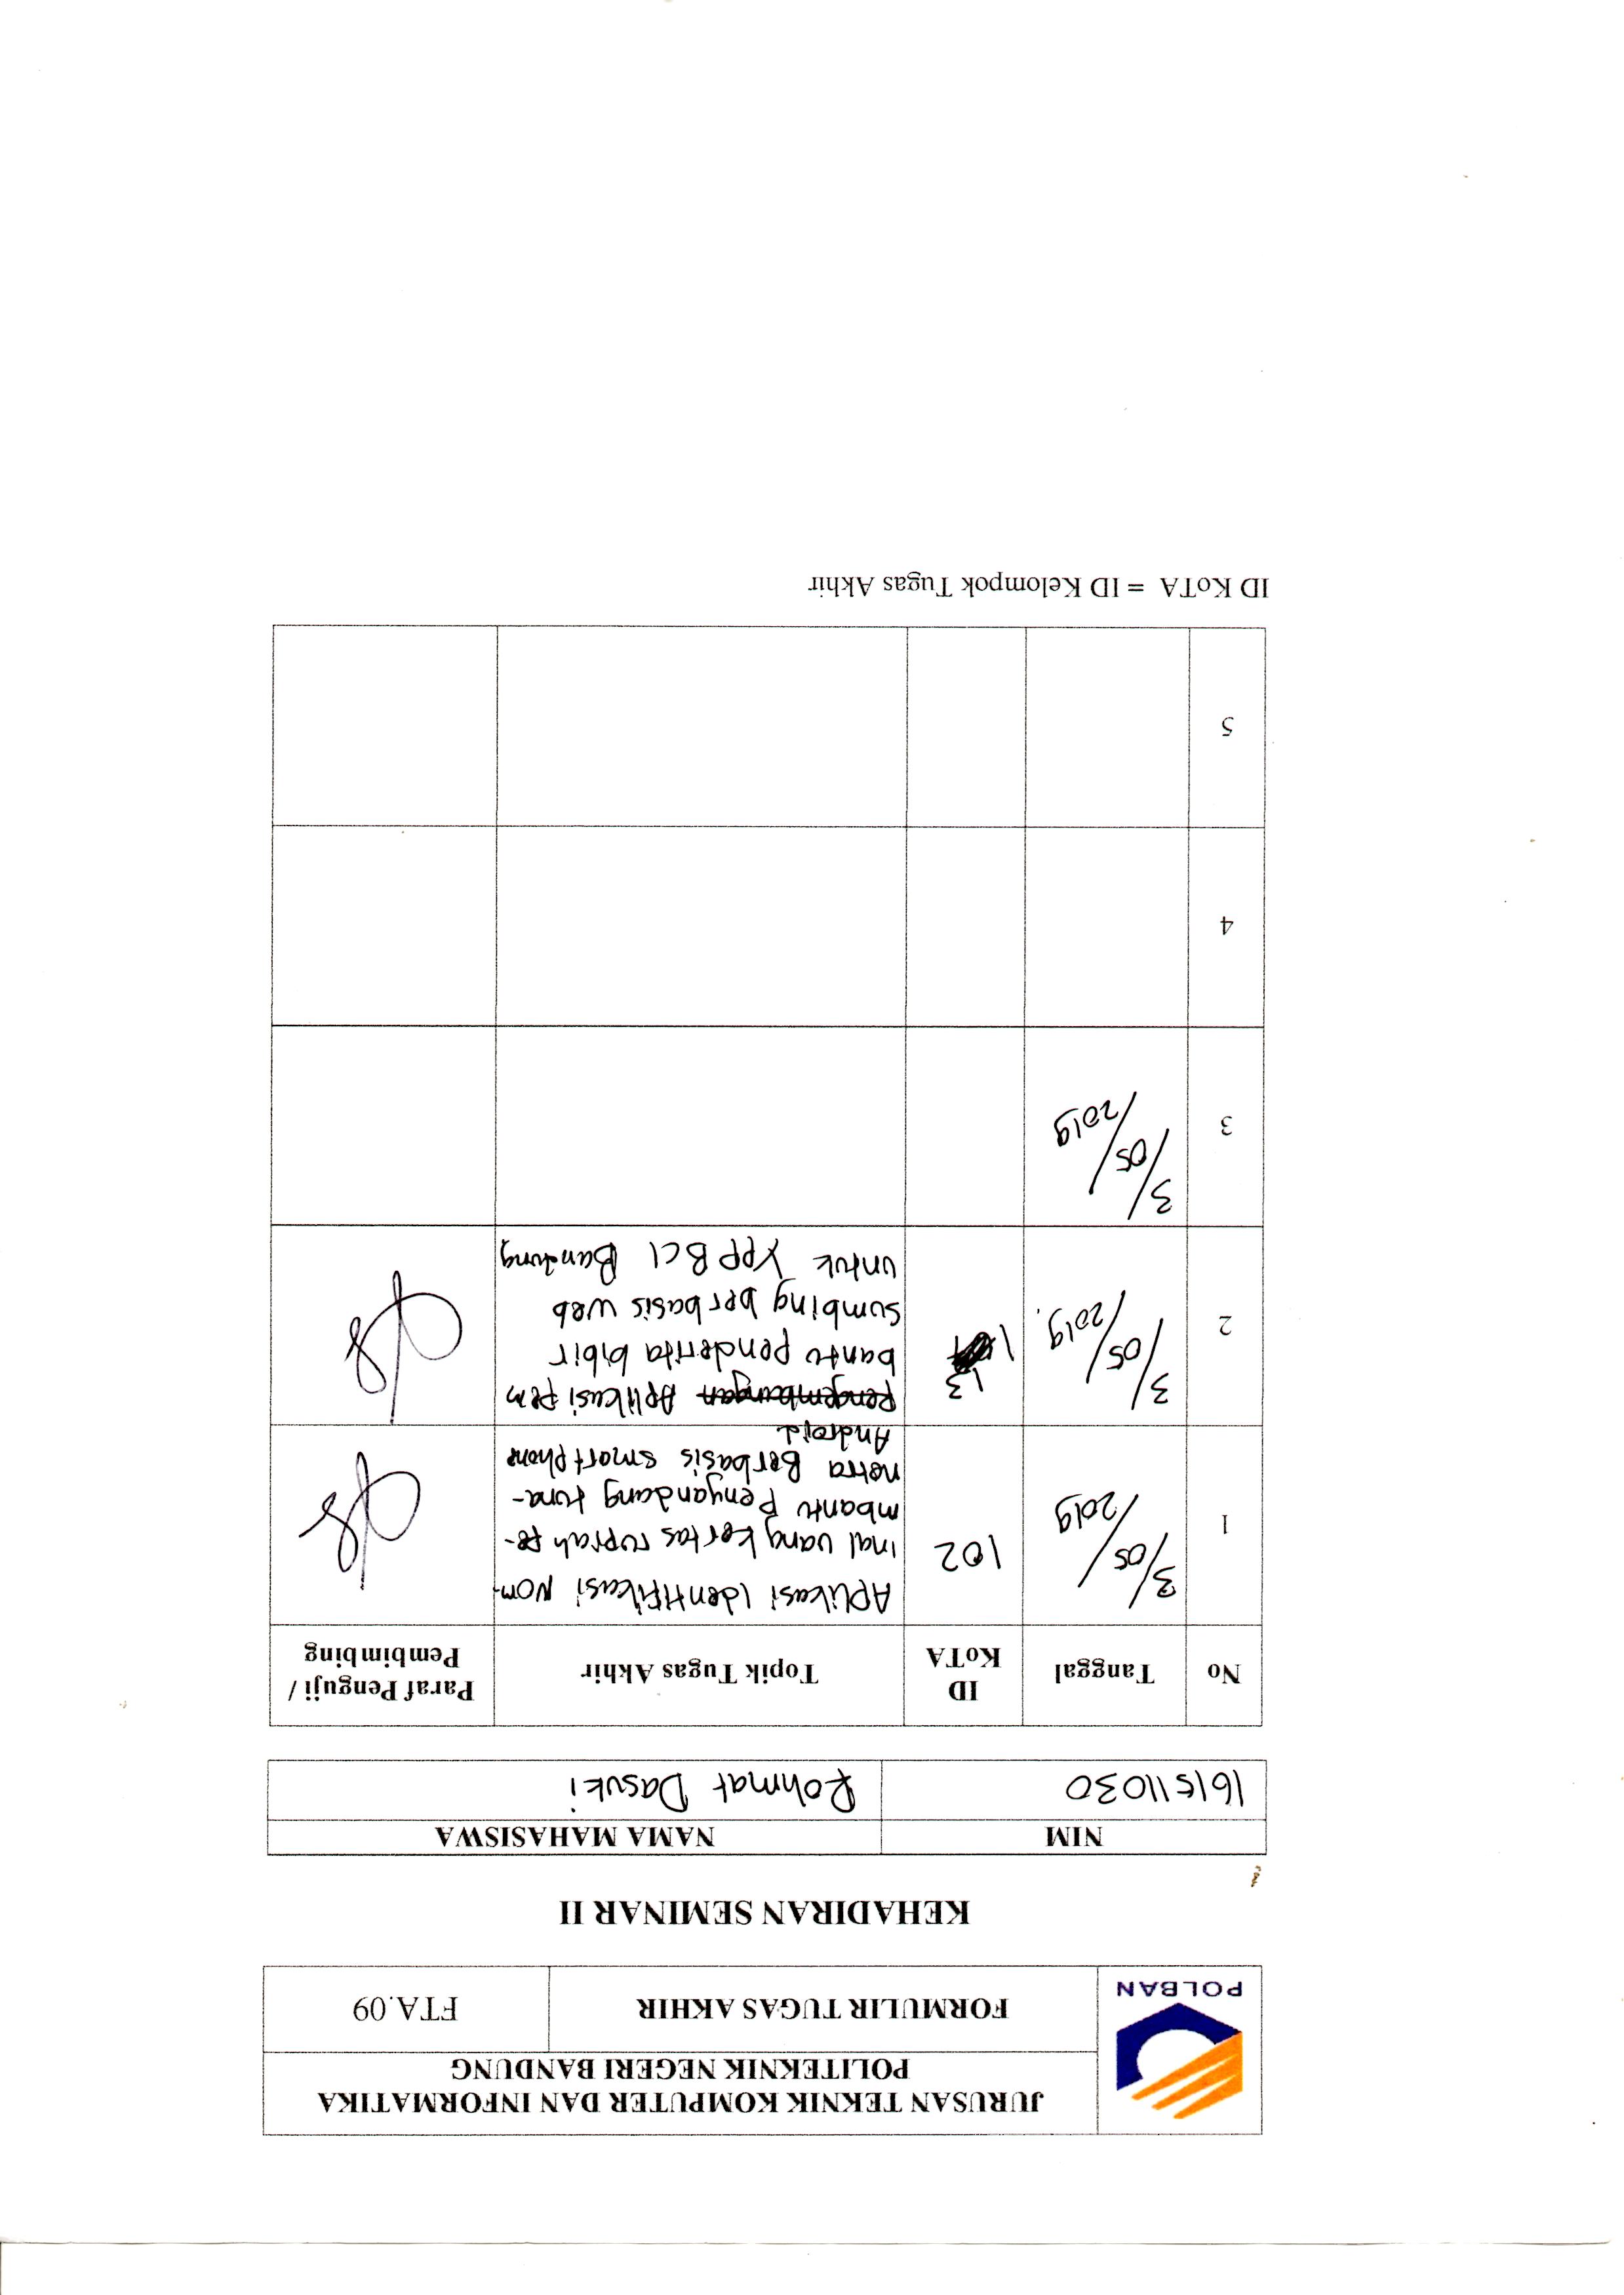 POLBAN
JURUSAN TEKNIK KOMPUTER DAN INFORMATIKA
POLITEKNIK NEGERI BANDUNG
FORMULIR TUGAS AKHIR
FTA.09
KEHADIRAN SEMINAR II
NIM
NAMA MAHASISWA
161511030
Rohmat Dasuki
No
Tanggal
ID
KoTA
Topik Tugas Akhir
Paraf Penguji /
Pembimbing
1
3/05/2019
102
Aplikasi Identifikasi Nom-
inal uang kertas rupiah pe-
mbantu Penyandang tuna-
netra Berbasis smartphone
Android
2
3/05/2019.
113
Pengembangan Aplikasi Pem
bantu penderita bibir
sumbing berbasis web
untuk YPPBCL Bandung
3
3/05/2019
4
5
ID KoTA = ID Kelompok Tugas Akhir